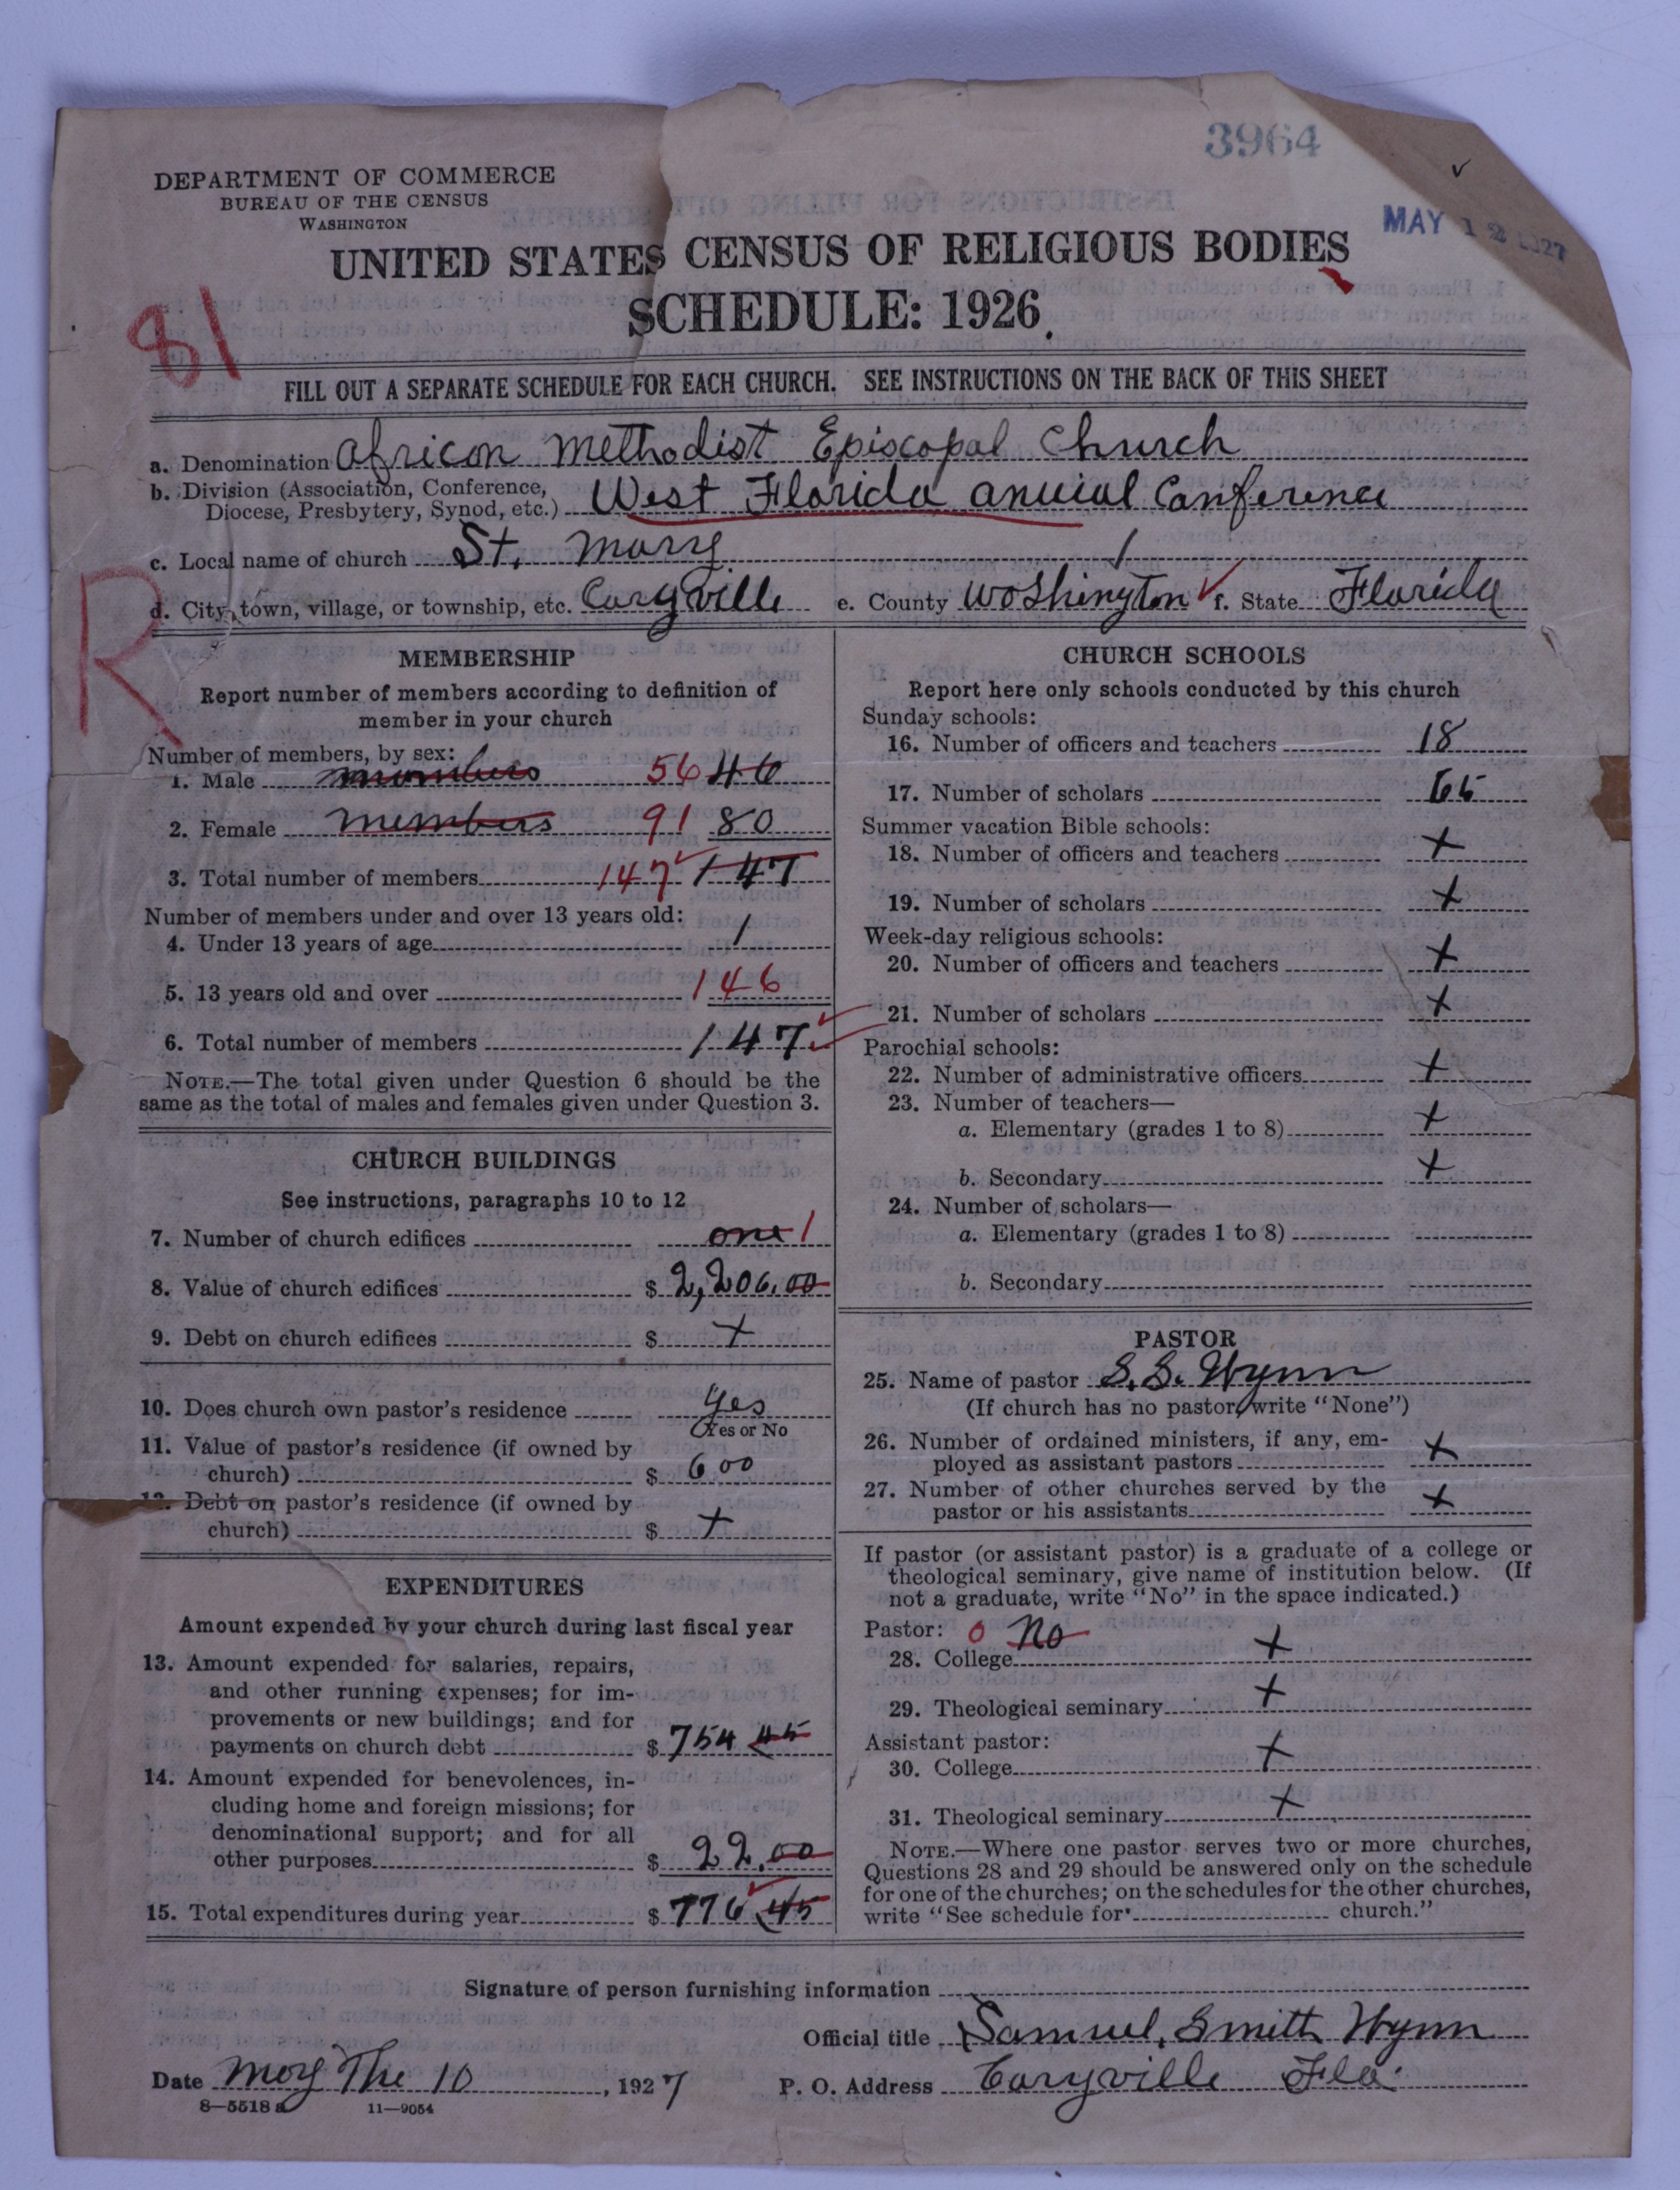 3964
MAY 12 1927
DEPARTMENT OF COMMERCE
BUREAU OF THE CENSUS
WASHINGTON
UNITED STATES CENSUS OF RELIGIOUS BODIES
SCHEDULE: 1926
81
FILL OUT A SEPARATE SCHEDULE FOR EACH CHURCH. SEE INSTRUCTIONS ON THE BACK OF THIS SHEET
a. Denomination African Methodist Episcopal Church
b. Division (Association, Conference,
Diocese, Presbytery, Synod, etc.) West Florida anuial Conference
c. Local name of church St. Mary
d. City, town, village, or township, etc. Caryville e. County Woshington f. State Florida
R
MEMBERSHIP
Report number of members according to definition of
member in your church
Number of members, by sex:
1. Male members 56 46
2. Female members 91 80
3. Total number of members 147 147
Number of members under and over 13 years old:
4. Under 13 years of age 1
5. 13 years old and over 146
6. Total number of members 147
NOTE.—The total given under Question 6 should be the
same as the total of males and females given under Question 3.
CHURCH BUILDINGS
See instructions, paragraphs 10 to 12
7. Number of church edifices one 1
8. Value of church edifices $ 2,206.00
9. Debt on church edifices $ +
10. Does church own pastor's residence yes
Yes or No
11. Value of pastor's residence (if owned by
church) $ 600
12. Debt on pastor's residence (if owned by
church) $ +
EXPENDITURES
Amount expended by your church during last fiscal year
13. Amount expended for salaries, repairs,
and other running expenses; for im-
provements or new buildings; and for
payments on church debt $ 754 45
14. Amount expended for benevolences, in-
cluding home and foreign missions; for
denominational support; and for all
other purposes $ 22.00
15. Total expenditures during year $ 776 45
CHURCH SCHOOLS
Report here only schools conducted by this church
Sunday schools:
16. Number of officers and teachers 18
17. Number of scholars 65
Summer vacation Bible schools:
18. Number of officers and teachers +
19. Number of scholars +
Week-day religious schools:
20. Number of officers and teachers +
21. Number of scholars +
Parochial schools:
22. Number of administrative officers +
23. Number of teachers—
a. Elementary (grades 1 to 8) +
b. Secondary +
24. Number of scholars—
a. Elementary (grades 1 to 8)
b. Secondary
PASTOR
25. Name of pastor S. S. Wynn
(If church has no pastor, write "None")
26. Number of ordained ministers, if any, em-
ployed as assistant pastors +
27. Number of other churches served by the
pastor or his assistants +
If pastor (or assistant pastor) is a graduate of a college or
theological seminary, give name of institution below. (If
not a graduate, write "No" in the space indicated.)
Pastor: 0 No
28. College +
29. Theological seminary +
Assistant pastor:
30. College +
31. Theological seminary +
NOTE.—Where one pastor serves two or more churches,
Questions 28 and 29 should be answered only on the schedule
for one of the churches; on the schedules for the other churches,
write "See schedule for church."
Signature of person furnishing information
Official title Samuel, Smith Wynn
Date May The 10, 1927 P. O. Address Caryville Fla.
8—5518 a 11—9054